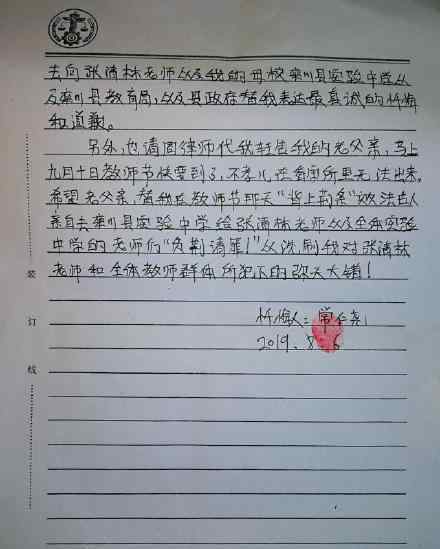 去向张清林老师以及我的母校栾川县实验中学以
及栾川县教育局,以及县政府替我表达最真诚的忏悔
和道歉。
另外,也请周律师代我转告我的老父亲,马上
九月十日教师节快要到了,不孝儿在看守所里无法出来。
希望老父亲,替我在教师节那天"背上荆条"效法古人
亲自去栾川县实验中学给张清林老师以及全体实验
中学的老师们"负荆请罪!"以洗刷我对张清林
老师和全体教师群体所犯下的弥天大错!
忏悔人:常仁尧
2019.8.6
装
订
线